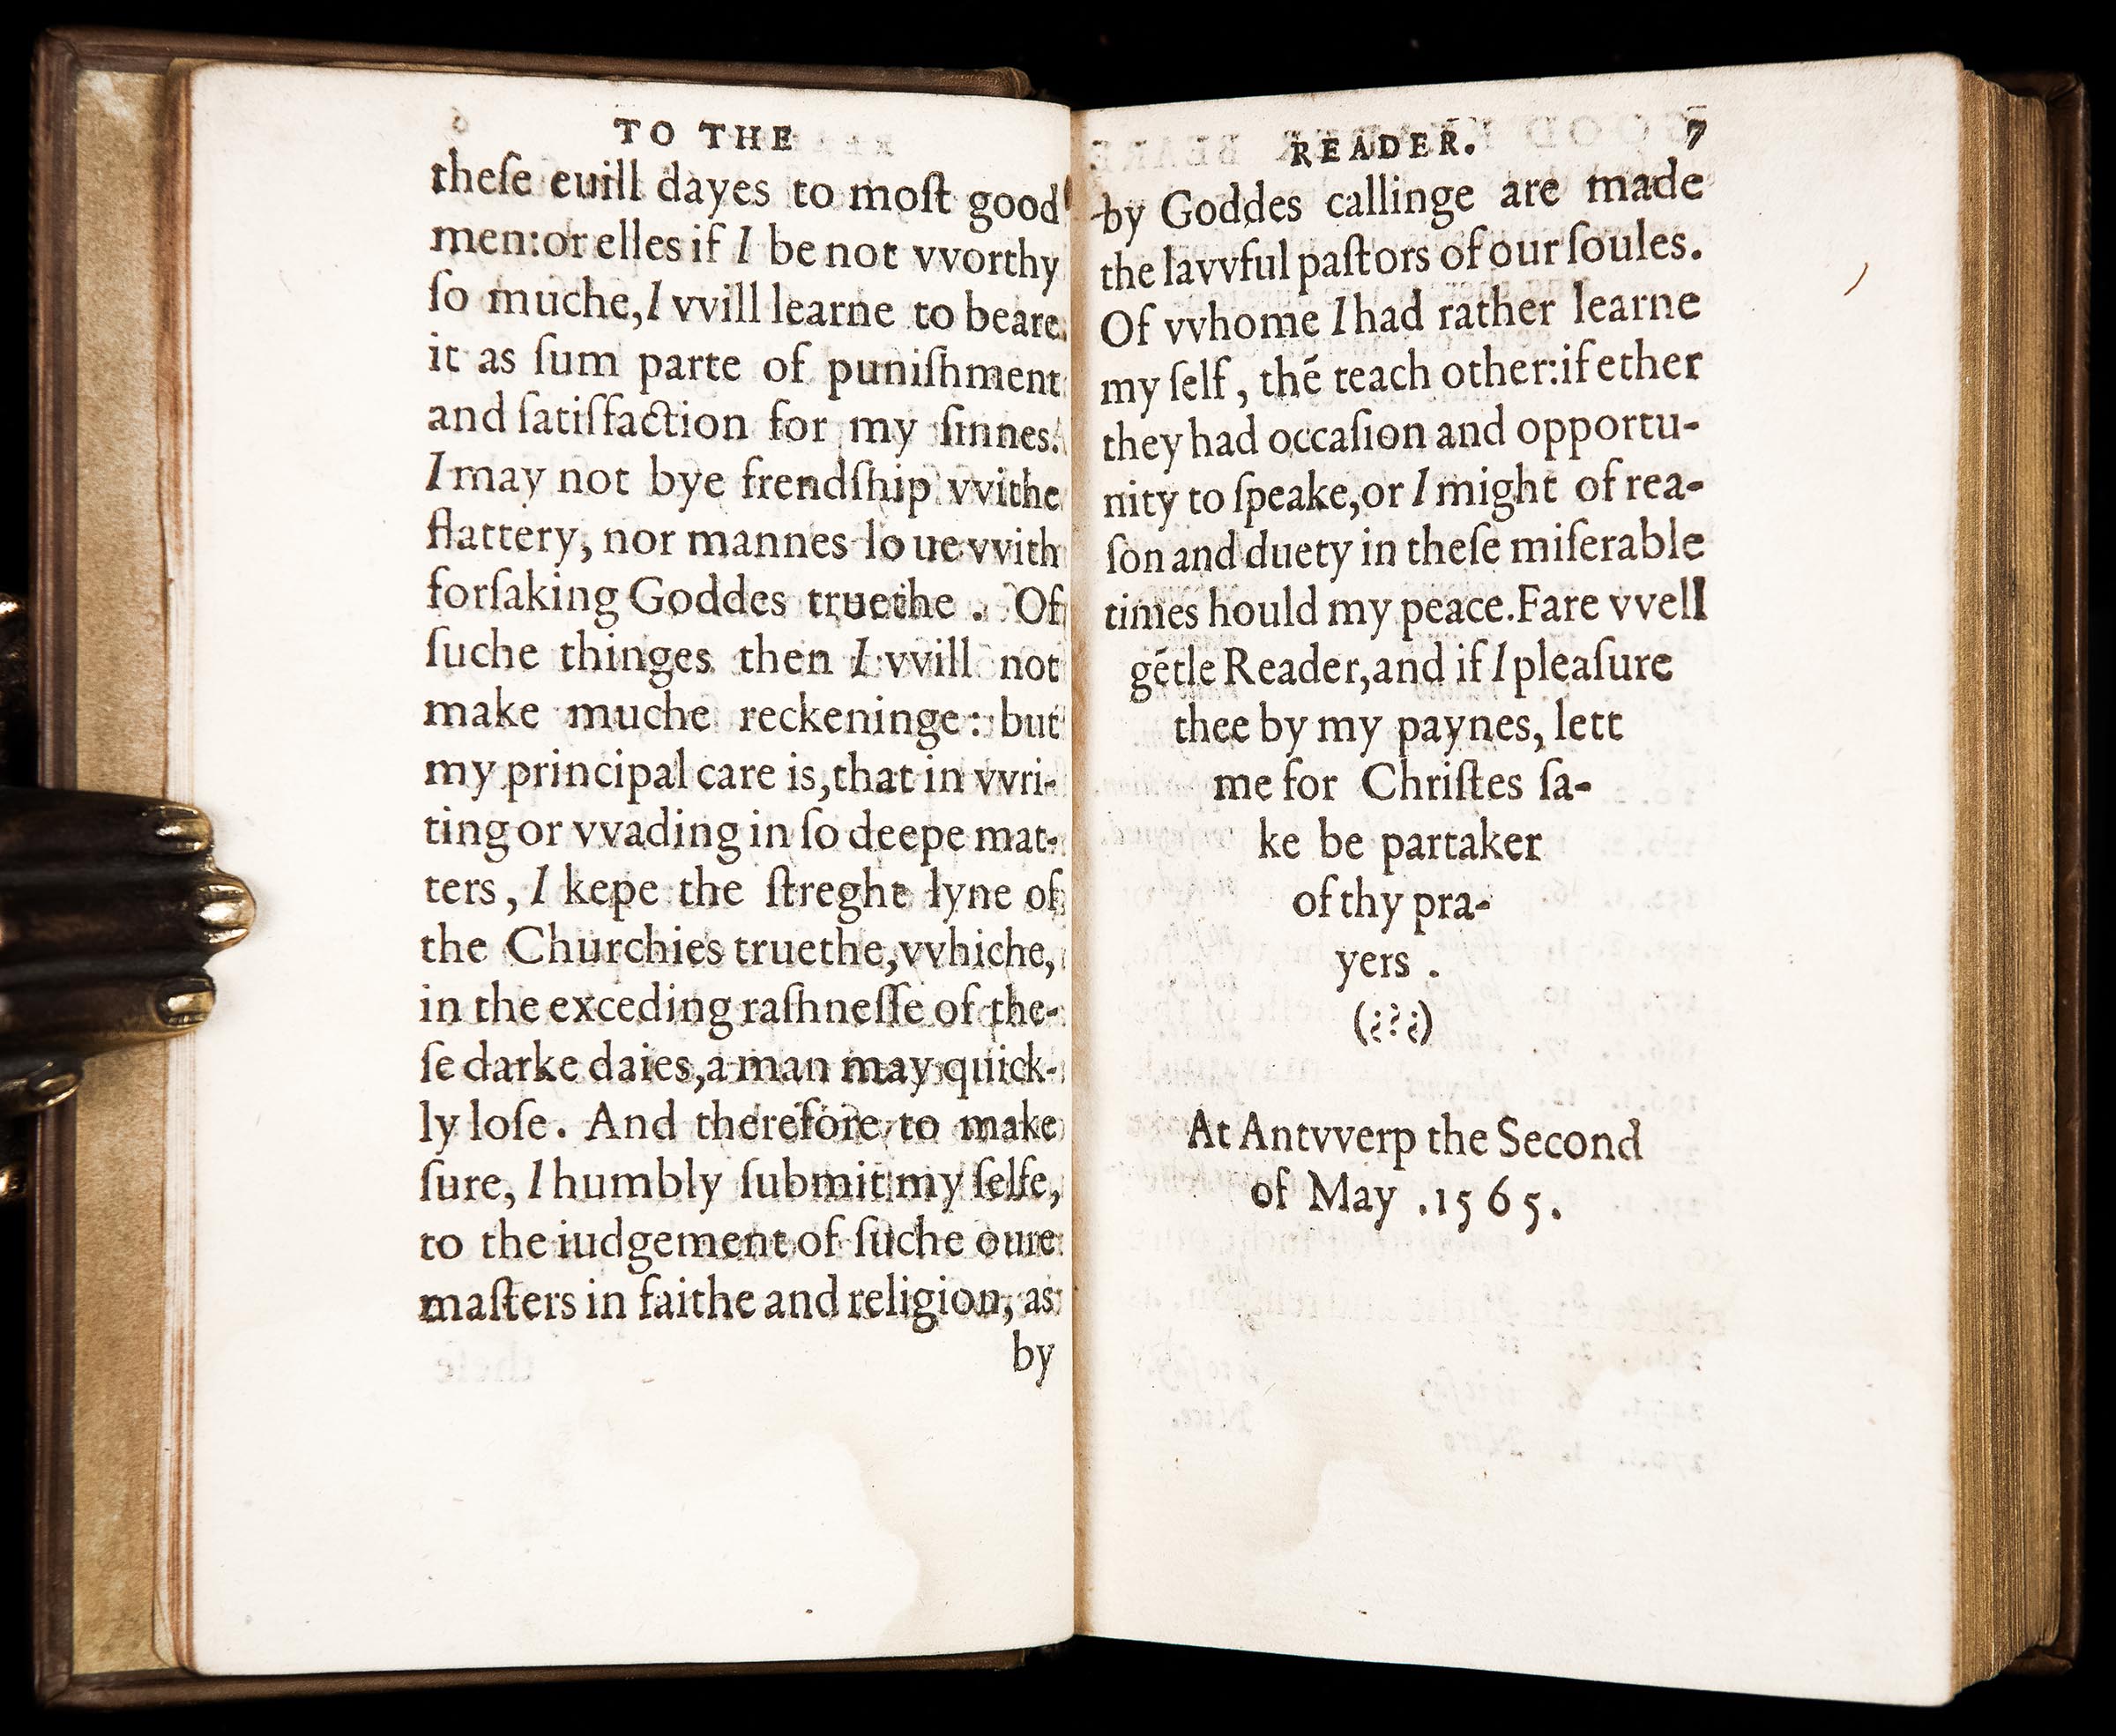 TO THE
theſe euill dayes to moſt good
men:or elles if I be not vvorthy
ſo muche,I vvill learne to beare
it as ſum parte of puniſhment
and ſatiſfaction for my ſinnes.
I may not bye frendſhip vvithe
flattery, nor mannes loue vvith
forſaking Goddes truethe . Of
ſuche thinges then I vvill not
make muche reckeninge: but
my principal care is,that in vvri-
ting or vvading in ſo deepe mat-
ters, I kepe the ſtreght lyne of
the Churchies truethe,vvhiche,
in the exceding raſhneſſe of the-
ſe darke daies,a man may quick-
ly loſe. And therefore to make
ſure, I humbly ſubmit my ſelfe,
to the iudgement of ſuche oure
maſters in faithe and religion, as
by
READER. 7
by Goddes callinge are made
the lavvful paſtors of our ſoules.
Of vvhome I had rather learne
my ſelf, thē teach other:if ether
they had occaſion and opportu-
nity to ſpeake,or I might of rea-
ſon and duety in theſe miſerable
times hould my peace.Fare vvell
gētle Reader,and if I pleaſure
thee by my paynes, lett
me for Chriſtes ſa-
ke be partaker
of thy pra-
yers .
(¿?¿)
At Antvverp the Second
of May .1565.